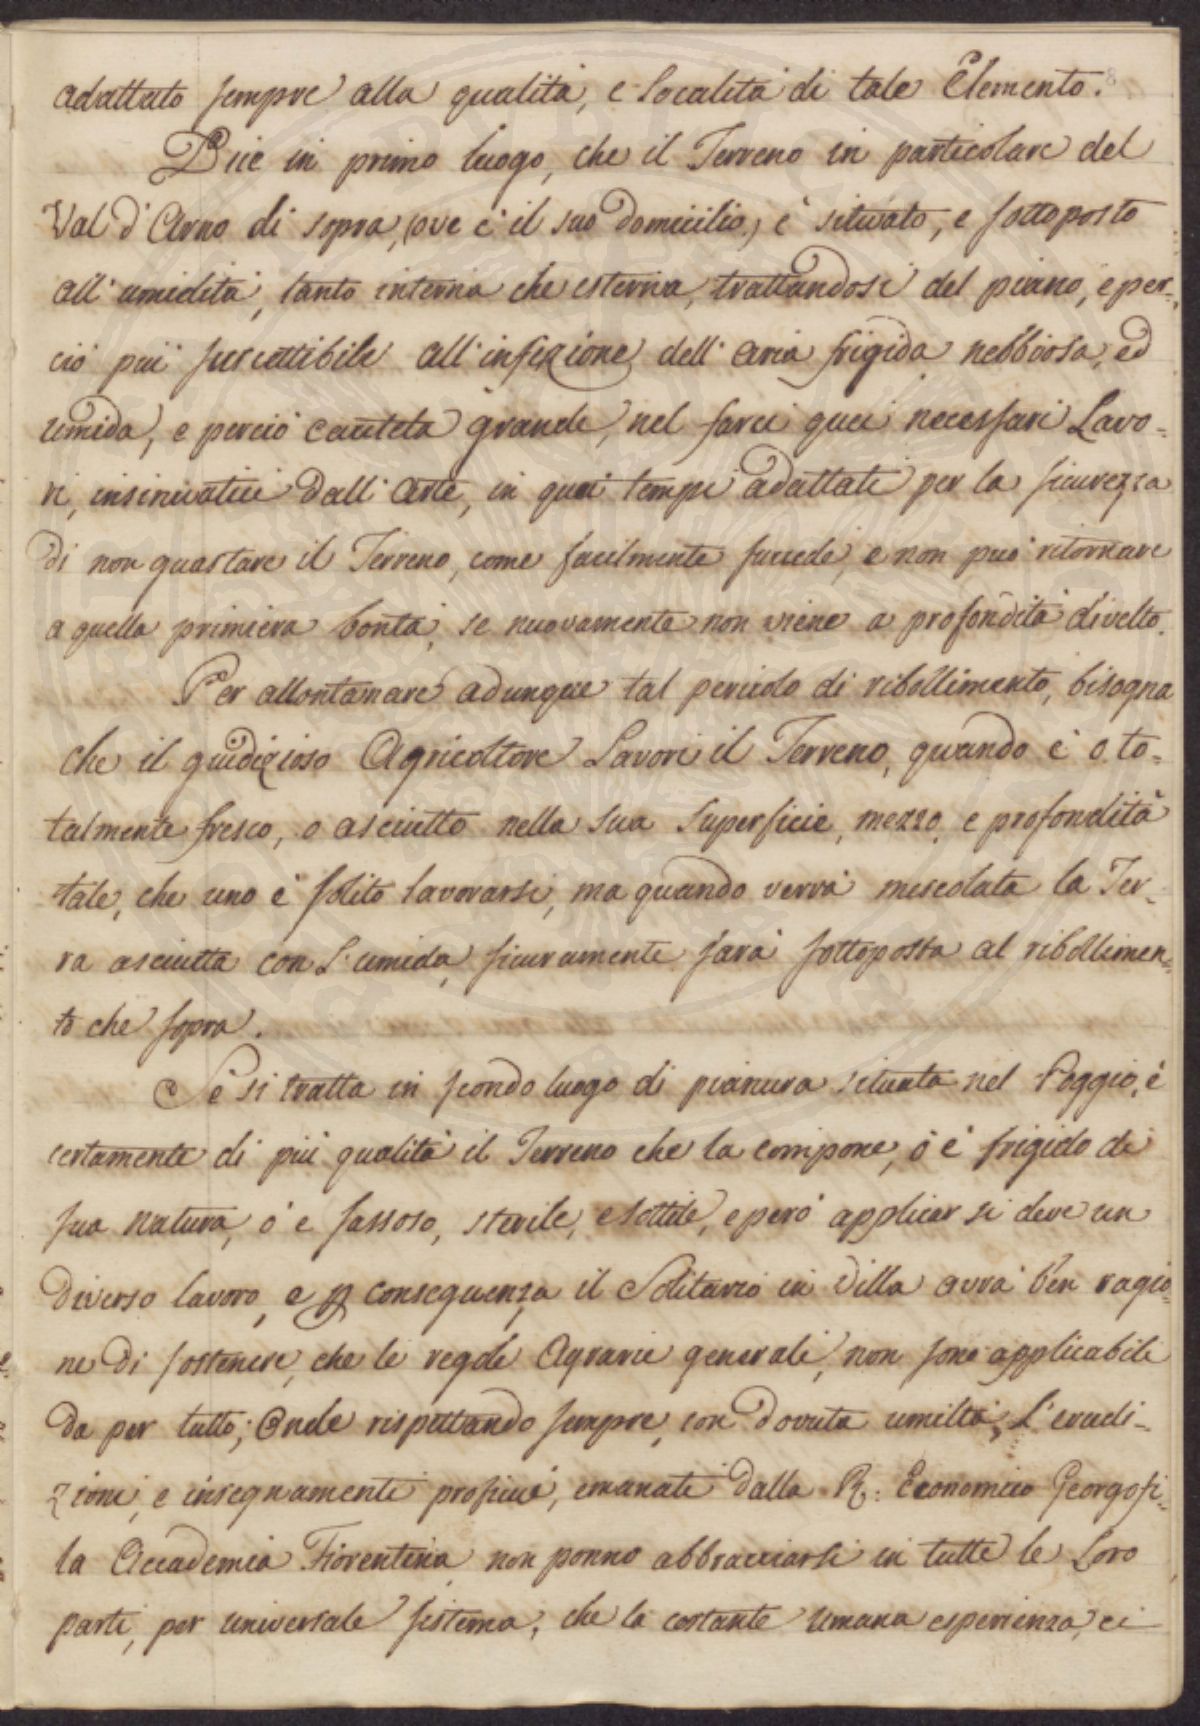 adattato sempre alla qualità, e Località di tale Elemento.
Dice in primo luogo, che il Terreno in particolare del
Val d'Arno di sopra, (ove è il suo domicilio) è situato, e sottoposto
all'umidità, tanto interna che esterna, trattandosi del piano, e per-
ciò più suscettibile all'infezione dell'aria frigida nebbiosa, ed
umida, e perciò cautela grande, nel farci quei necessari Lavo-
ri, insinuatici dall'Arte, in quei tempi adattati per la sicurezza
di non guastare il Terreno, come facilmente succede, e non può ritornare
a quella primiera bontà, se nuovamente non viene a profondità divelto.
Per allontanare adunque tal pericolo di ribollimento, bisogna
che il giudizioso Agricoltore Lavori il Terreno, quando è o to-
talmente fresco, o asciutto nella sua superficie, mezzo, e profondità
tale, che uno è solito lavorarsi, ma quando verrà mescolata la Ter-
ra asciutta con L'umida, sicuramente sarà sottoposta al ribollimen-
to che sopra.
Se si tratta in secondo luogo di pianura situata nel Poggio, è
certamente di più qualità il Terreno che la compone, ò è frigido di
sua natura, ò è sassoso, sterile, e sottile, e però applicar si deve un
diverso lavoro, e p conseguenza il Solitario in Villa avrà ben ragio-
ne di sostenere, che le regole Agrarie generali, non sono applicabili
da per tutto; Onde rispettando sempre, con dovuta umiltà, L'erudi-
zioni, e insegnamenti proficui, emanati dalla R: Economico Georgofi-
la Accademia Fiorentina non ponno abbracciarsi in tutte le Loro
parti, per universale sistema, che la costante umana esperienza, ci